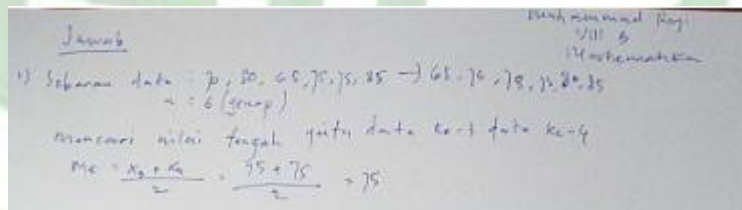 Muhammad Rogi
VIII B
Matematika
Jawab
1) Sebaran data : 70, 80, 65, 75, 75, 85 → 65, 70, 75, 75, 80, 85
n = 6 (genap)
mencari nilai tengah yaitu data ke-3 data ke-4
Me = x₃ + x₄ / 2 = 75 + 75 / 2 = 75